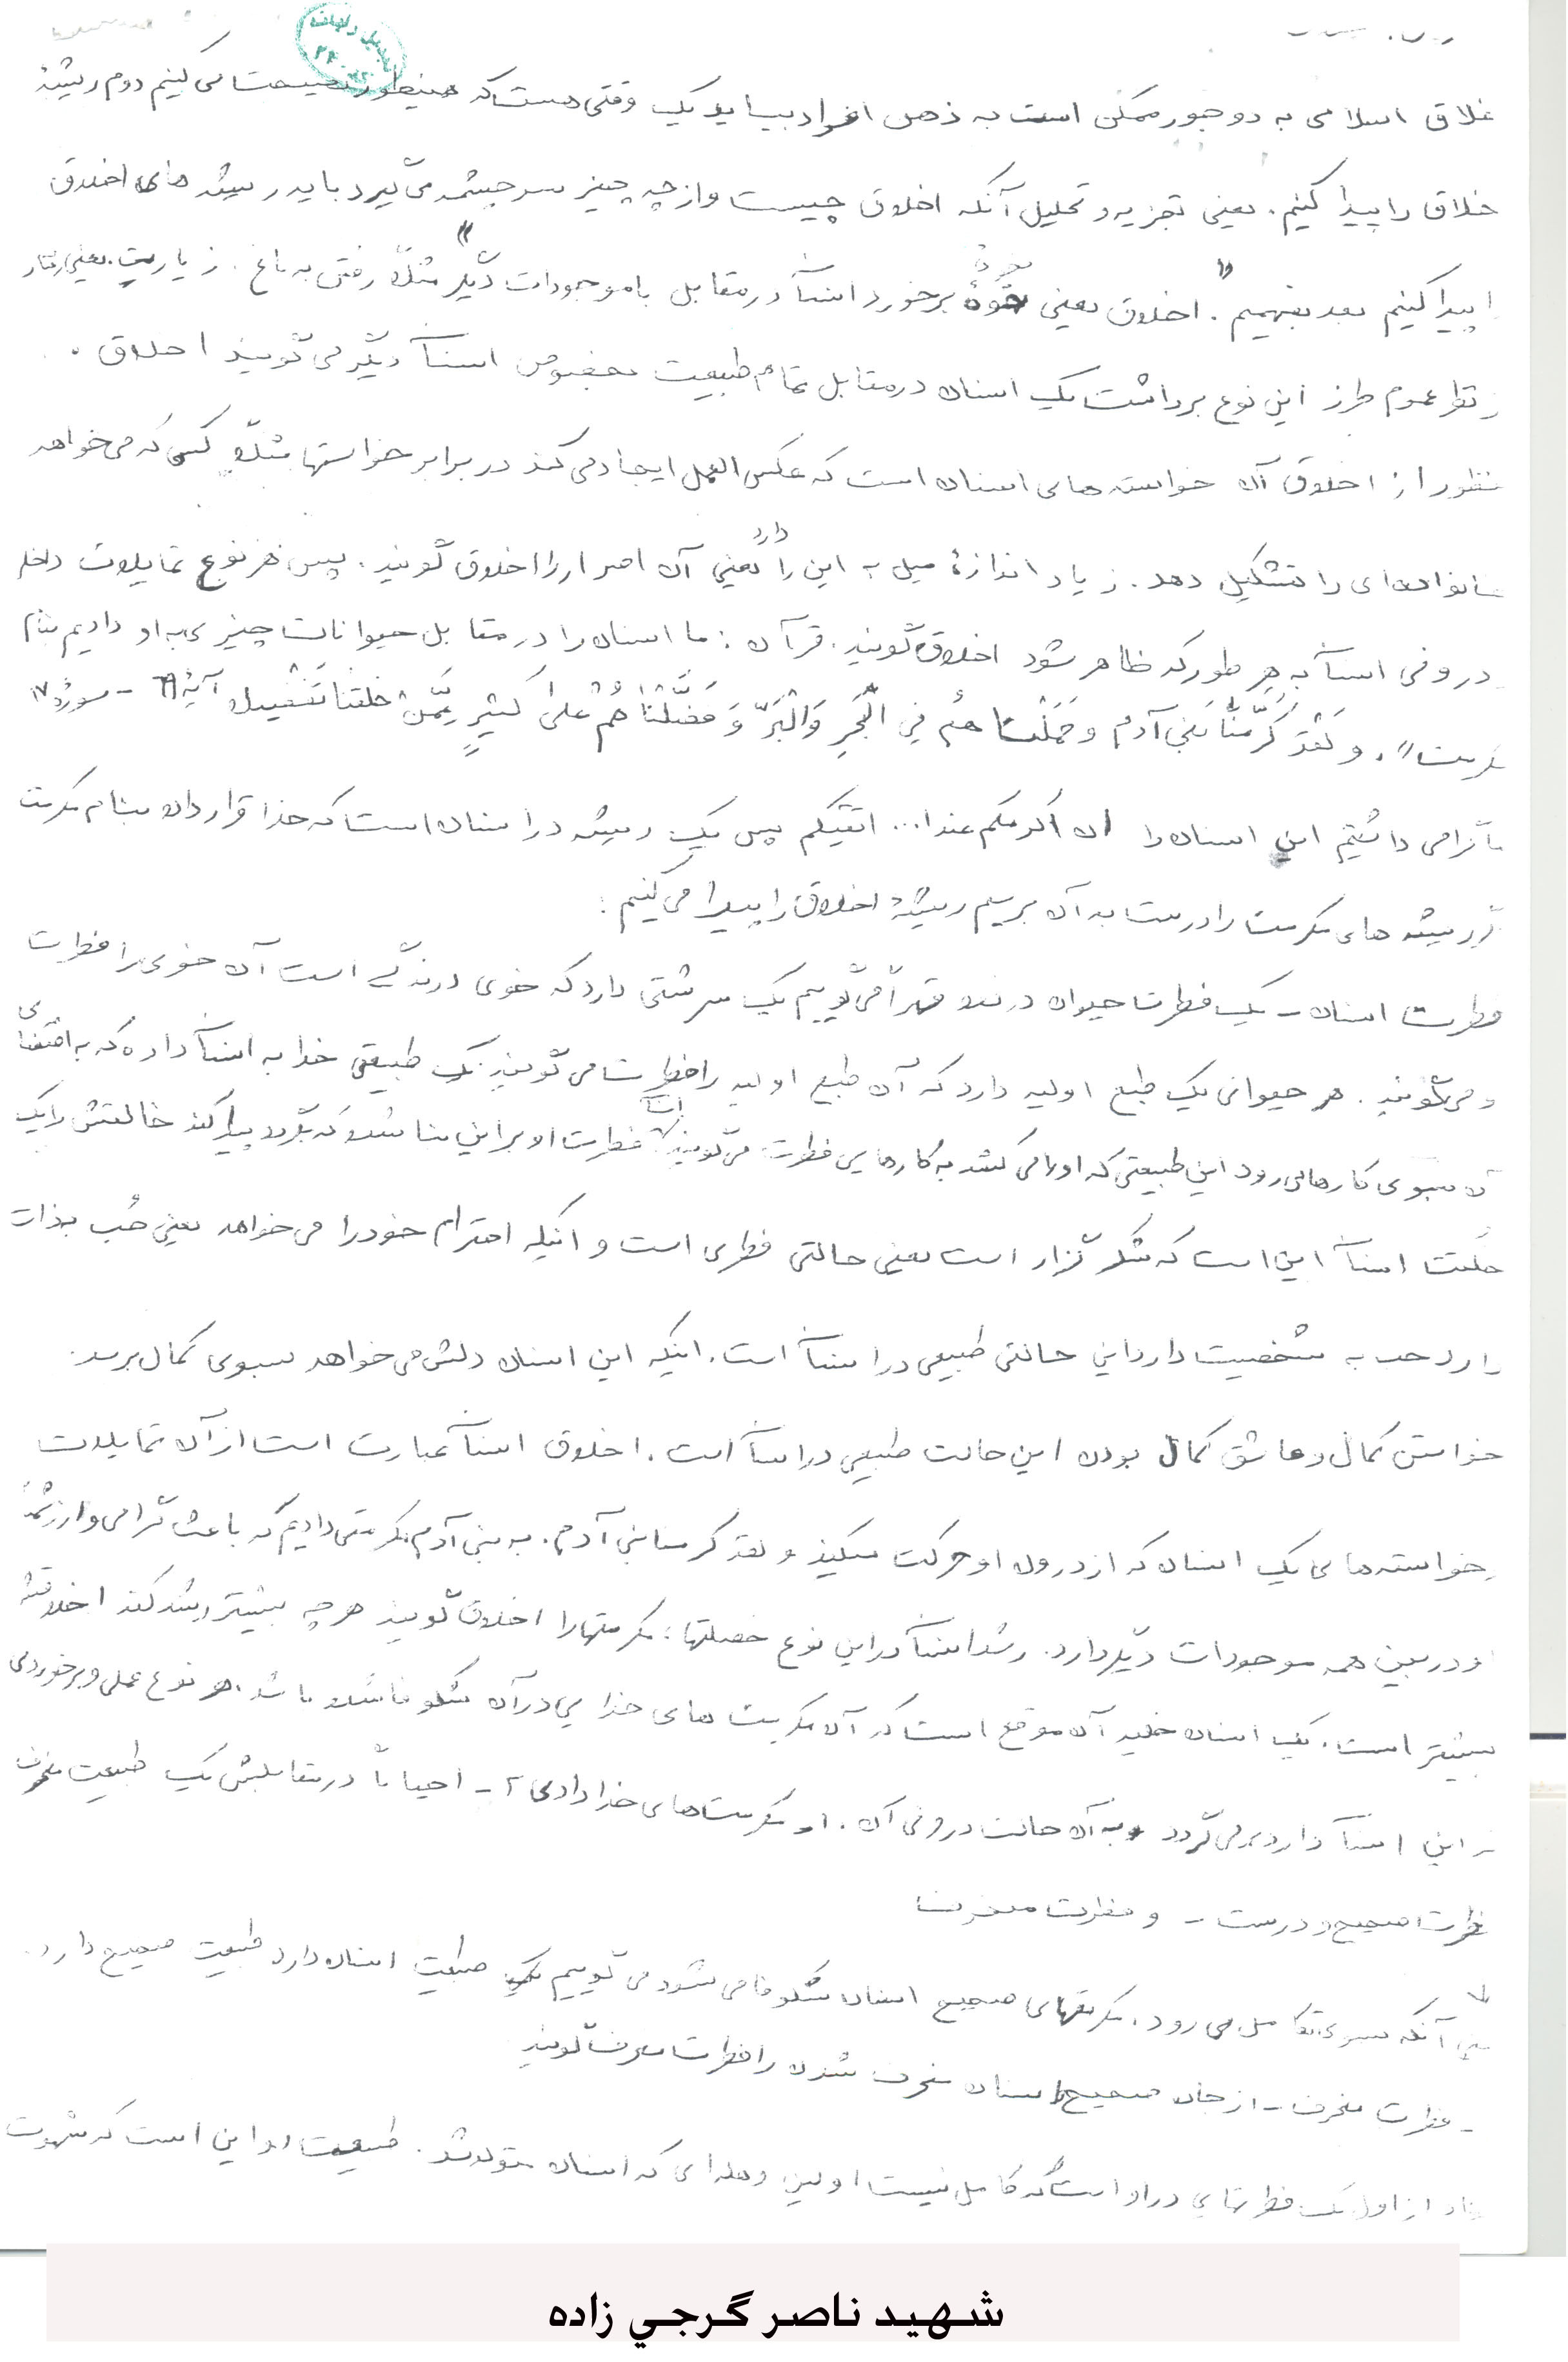 خلاق اسلامی به دو جور ممکن است به ذهن افراد بیاید یک وقتی هست که همینطور نصیحت می کنیم دوم ریشهٔ
خلاق را پیدا کنیم. یعنی تجزیه و تحلیل آنکه اخلاق چیست و از چه چیز سرچشمه می گیرد باید ریشه های اخلاق
ا پیدا کنیم بعد بفهمیم. "اخلاق یعنی نحوهٔ برخورد انسان در مقابل با موجودات دیگر" مثلاً رفتن به باغ. زیارت. یعنی رفتار
عموم طرز این نوع برداشت یک انسان در مقابل تمام طبیعت بخصوص انسان دیگر می گویند اخلاق.
نظور از اخلاق آن خواسته های انسان است که عکس العمل ایجاد می کند در برابر خواستها مثلاً کسی که می خواهد
خانواده ای را تشکیل دهد. زیاد اندازهٔ میل به این را دارد یعنی آن اصرار را اخلاق گویند. پس هر نوع تمایلات داخل
درونی انسان به هر طور که ظاهر شود اخلاق گویند. قرآن: ما انسان را در مقابل حیوانات چیزی به او دادیم بنام
کرمت". وَ لَقَدْ کَرَّمْنَا بَنی آدم و حَمَلْنَا هُم فِی الْبَحْرِ وَالْبَرِّ وَ فَضَّلْنَا هُمْ عَلیٰ کَثیرٍ مِمَّنْ خلقنا تَفْضیلا آیهٔ ۶۹ - سورهٔ ۱۷
ما گرامی داشتیم این انسان را ان اکرمکم عندا... اتقیکم پس یک ریشه در انسان است که خدا قرار داده بنام مکرمت
ریشه های مکرمت را درست به آن برسیم ریشهٔ اخلاق را پیدا می کنیم:
فطرت انسان - یک فطرت حیوان درنده قهراً می گوییم یک سرشتی دارد که خوی درندگی است آن خوی را فطرت
و می گویند. هر حیوانی یک طبع اولیه دارد که آن طبع اولیه را فطرت می گویند. یک طبیعتی خدا به انسان داده که به اقتضای
آن بسوی کارها می رود این طبیعتی که او را می کشد به کارهایی فطرت می گویند. فطرت انسان او بر این بنا شده که بگردد پیدا کند خالقش را یک
خلقت انسان این است که شکر گزار است یعنی حالتی فطری است و اینکه احترام خود را می خواهد یعنی حُب بذات
دارد حب به شخصیت دارد این حالتی طبیعی در انسان است. اینکه این انسان دلش می خواهد بسوی کمال برسد.
خواستن کمال و عاشق کمال بودن این حالت طبیعی در انسان است. اخلاق انسان عبارت است از آن تمایلات
خواسته های یک انسان که از درون او حرکت میکند و لقد کرمنا بنی آدم. به بنی آدم مکرمتی دادیم که باعث گرامی و ارزشمند
او در بین همه موجودات دیگر دارد. رشد انسان در این نوع خصلتها؛ مکرمتها را اخلاق گویند هر چه بیشتر رشد کند اخلاقش
بیشتر است. یک انسان خلیق آن موقع است که آن مکرمت های خدایی در آن شکوفا شده باشد. هر نوع عملی و برخوردی
که این انسان دارد برمی گردد به آن حالت درونی آن. ۱- مکرمت های خدادادی ۲- احیاناً در مقابلش یک طبیعت منحرف
فطرت صحیح و درست - و فطرت منحرف
یعنی آنکه بسوی تکامل می رود. مکرمتهای صحیح انسان شکوفا می شود می گوییم یک طبیعت انسان دارد طبیعت صحیح دارد.
- فطرت منحرف - از حالت صحیح انسان منحرف شدن را فطرت منحرف گویند
از اول یک فطرتهایی در او است که کامل نیست اولین وهله ای که انسان متولد شد. طبیعت او این است که شهوت
شهید ناصر گرجي زاده